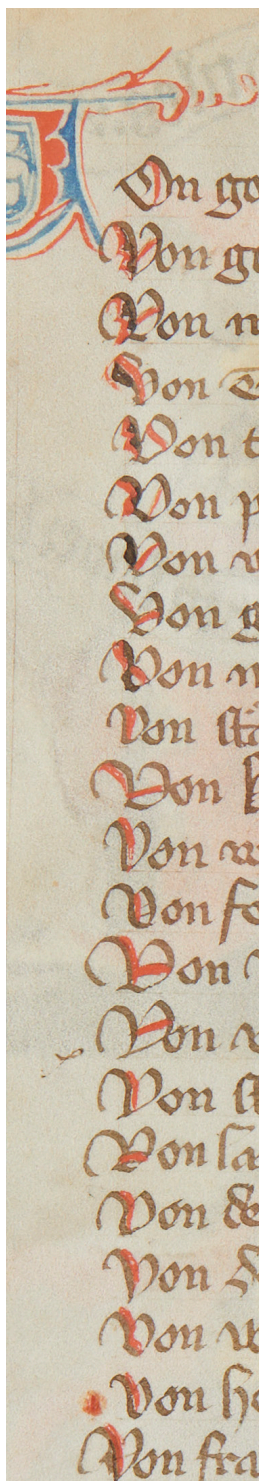 On go
Von ge
Von
Von
Von t
Von p
Von
Von g
Von
Von
Von k
Von
Von fo
Von
Von
Von
Von la
Von de
Von d
Von
Von he
Von fra